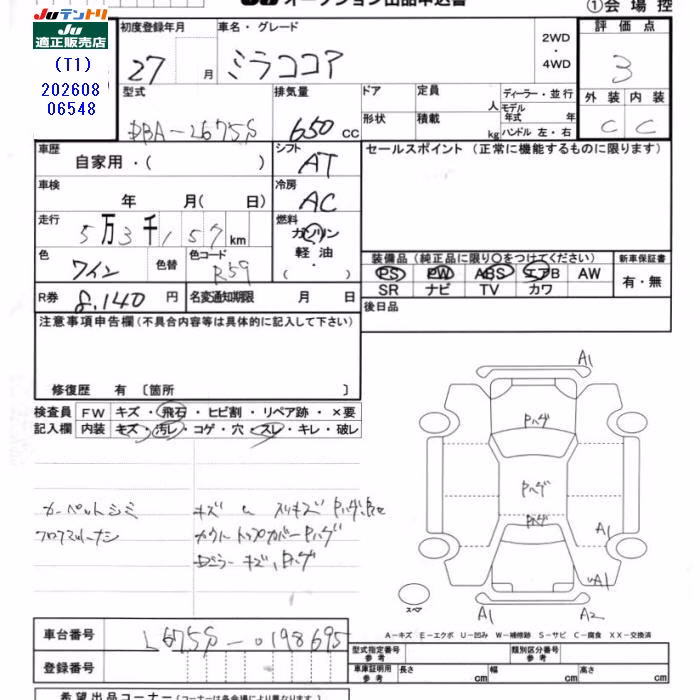 JUテントリ
JU適正販売店
(T1)
202608
06548
JU オークション出品申込書
①会場控
初度登録年月
27 月
車名・グレード
ミラココア
2WD
・
4WD
評価点
3
外装 内装
C C
型式
DBA-L675S
排気量
650 cc
ドア
形状
定員
人
積載
kg
ディーラー・並行
モデル年式 年
ハンドル 左・右
車歴
自家用・( )
シフト
AT
セールスポイント(正常に機能するものに限ります)
車検
年 月( 日)
冷房
AC
走行
5万3千157km
燃料
ガソリン
軽油
( ・ )
色
ワイン
色替
色コード
R59
装備品(純正品に限り○をつけてください)
PS PW ABS エアB AW
SR ナビ TV カワ
新車保証書
有・無
R券
8,140円
名変通知期限 月 日
後日品
注意事項申告欄(不具合内容等は具体的に記入して下さい)
修復歴 有 〔箇所 〕
検査員
記入欄
FW キズ・飛石・ヒビ割・リペア跡・×要
内装 キズ・汚レ・コゲ・穴・スレ・キレ・破レ
カーペットシミ
フロアマットナシ
キズ
スリキズ
カウルトップカバーPハゲ
Dミラーキズ、Pハゲ
A1
Pハゲ
Pハゲ
Pハゲ
A1
UA1
スペア
A1
A2
A-キズ E-エクボ U-凹み W-補修跡 S-サビ C-腐食 XX-交換済
車台番号
L675S-0198695
登録番号
型式指定番号
参考
類別区分番号
参考
車庫証明用
参考
長さ cm
幅 cm
高さ cm
希望出品コーナー(コーナーは各会場により異なります)